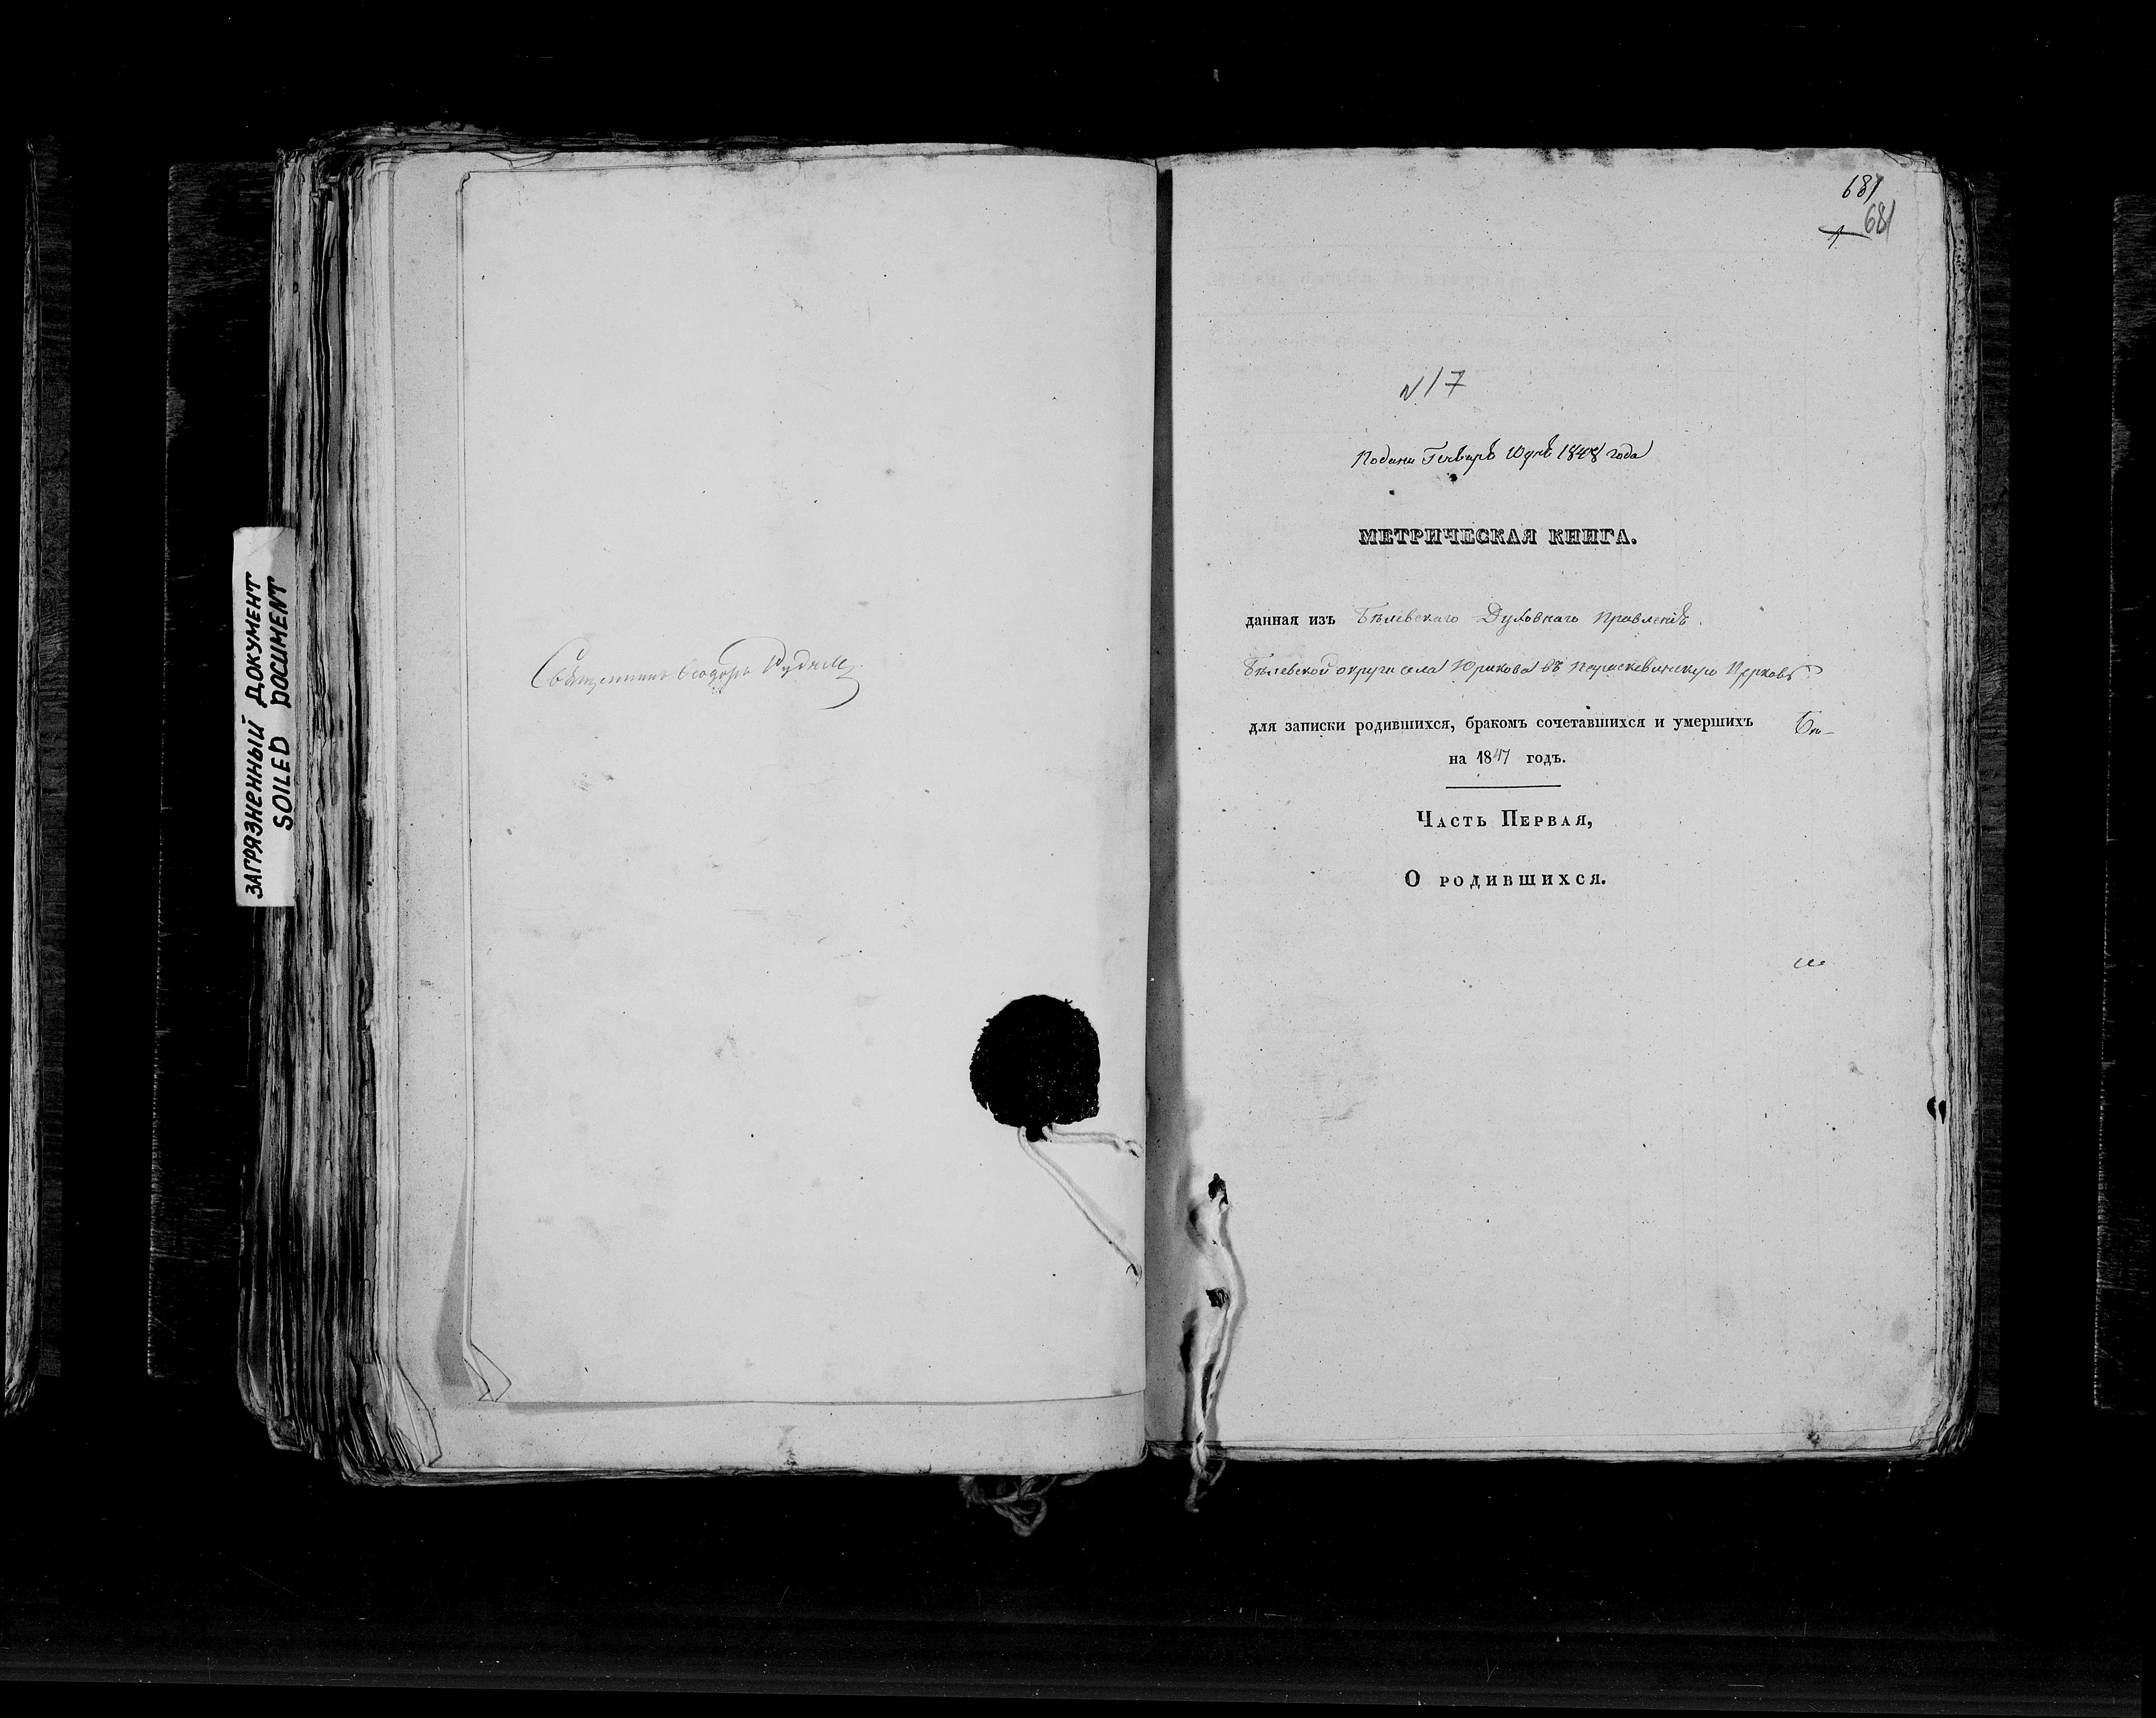 ЗАГРЯЗНЕННЫЙ ДОКУМЕНТ
SOILED DOCUMENT
Священникъ Ѳеодоръ Руднев
681
681
1
N 17
Подана Генваря 10 дня 1848 года
МЕТРИЧЕСКАЯ КНИГА.
данная изъ Бѣлевскаго Духовнаго Правленія.
Бѣлевской округи села Юрикова въ Параскевинскую Церковь
для записки родившихся, бракомъ сочетавшихся и умершихъ
на 1847 годъ.
Часть Первая,
О родившихся.